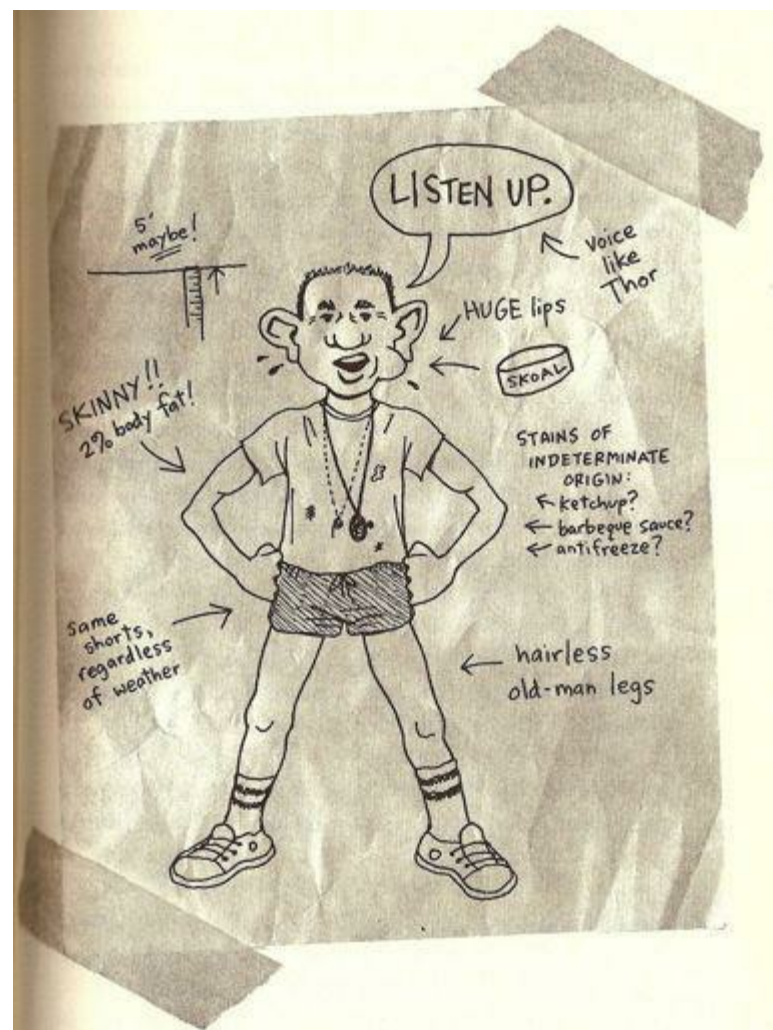 LISTEN UP.
5'
maybe!
voice
like
Thor
HUGE lips
SKOAL
SKINNY!!
2% body fat!
STAINS OF
INDETERMINATE
ORIGIN:
ketchup?
barbeque sauce?
antifreeze?
same
shorts,
regardless
of weather
hairless
old-man legs